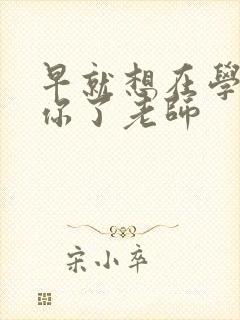 早就想在學
你了老師
宋小卒